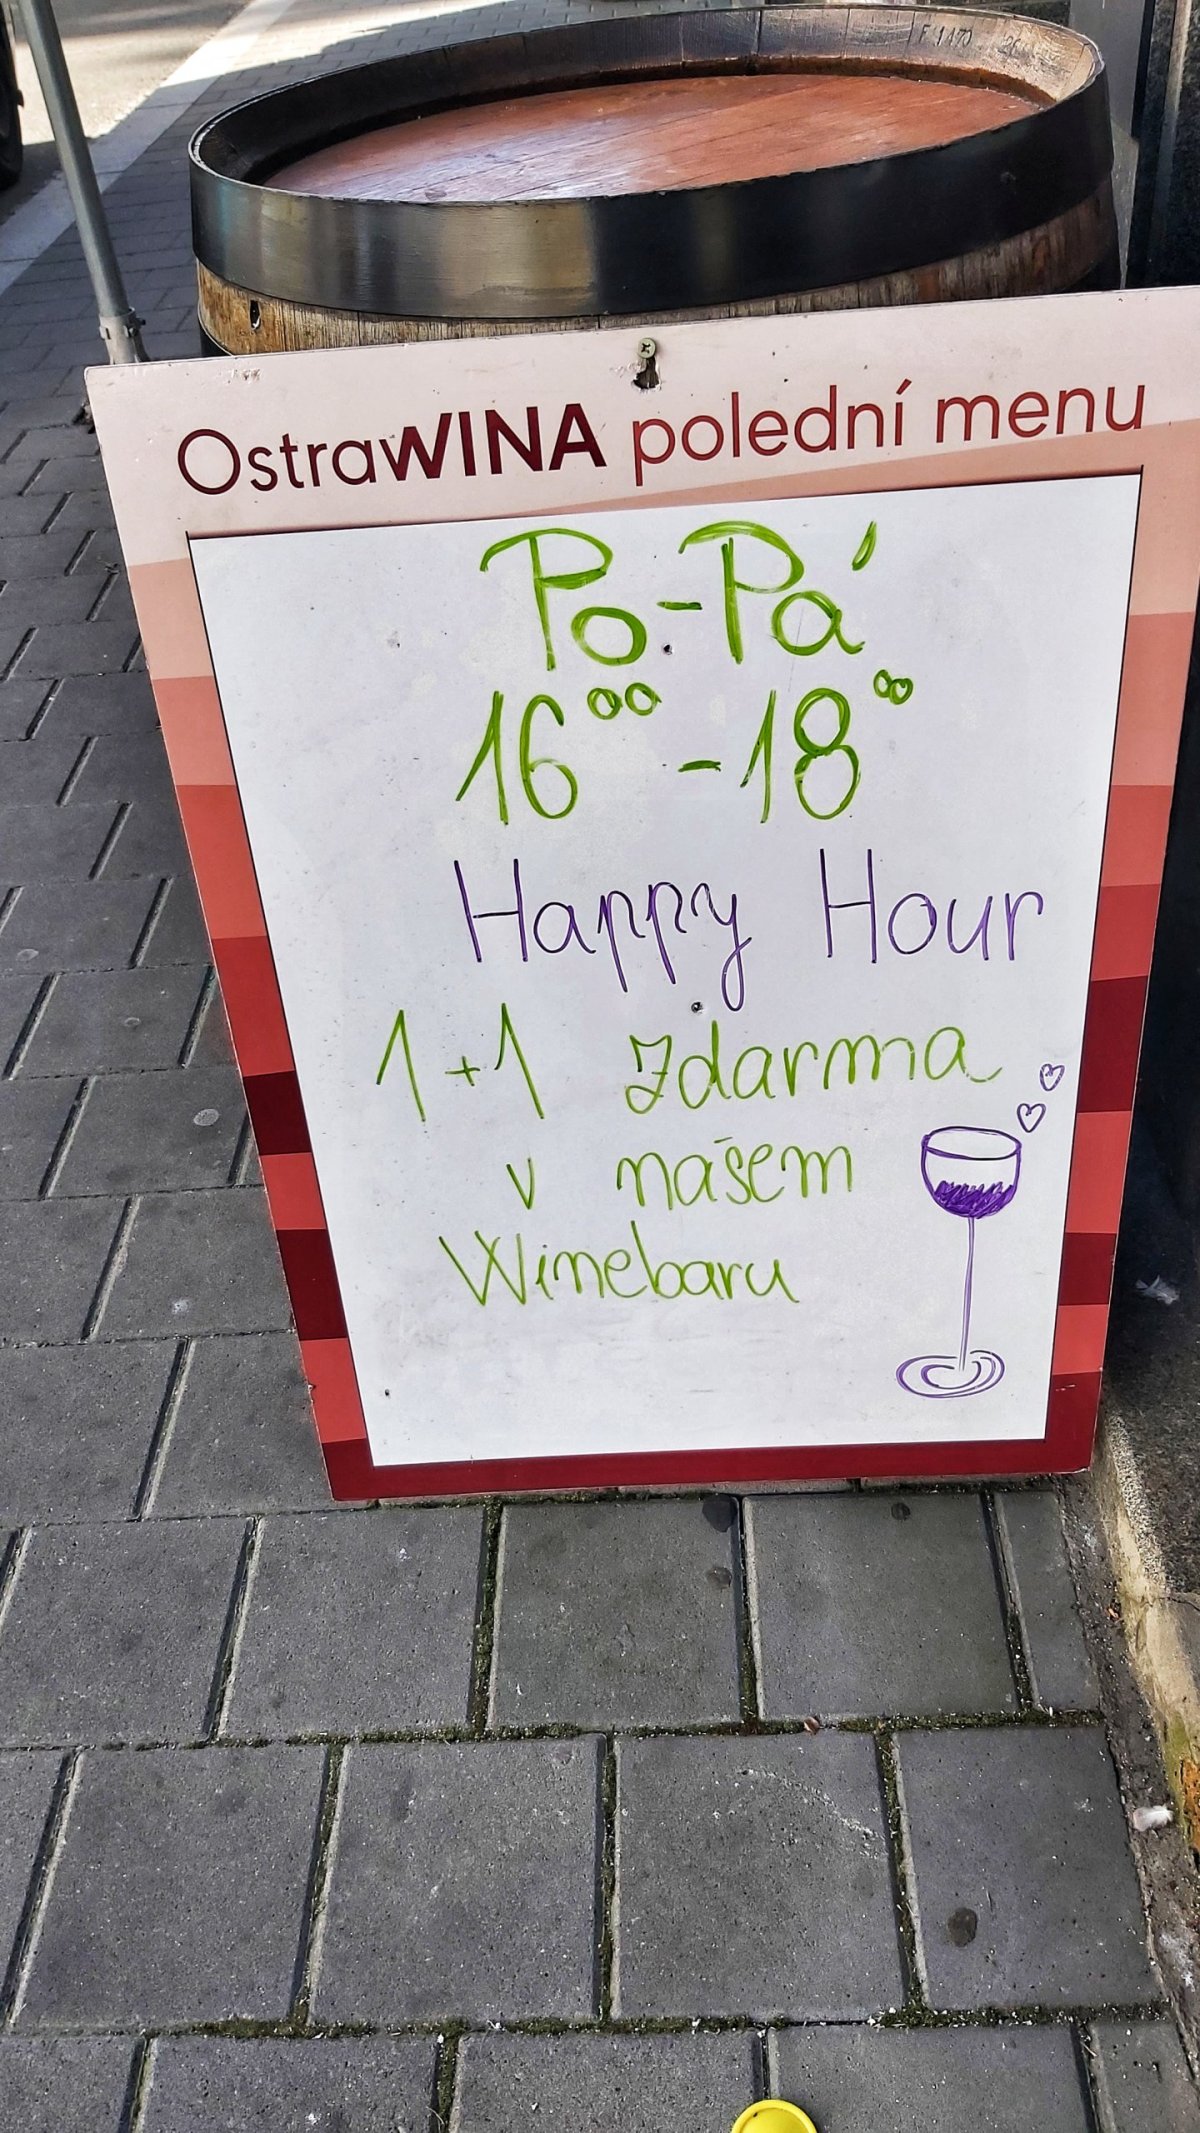 F 1470 26
OstraWINA polední menu
Po-Pá
16⁰⁰-18⁰⁰
Happy Hour
1+1 zdarma
v našem
Winebaru